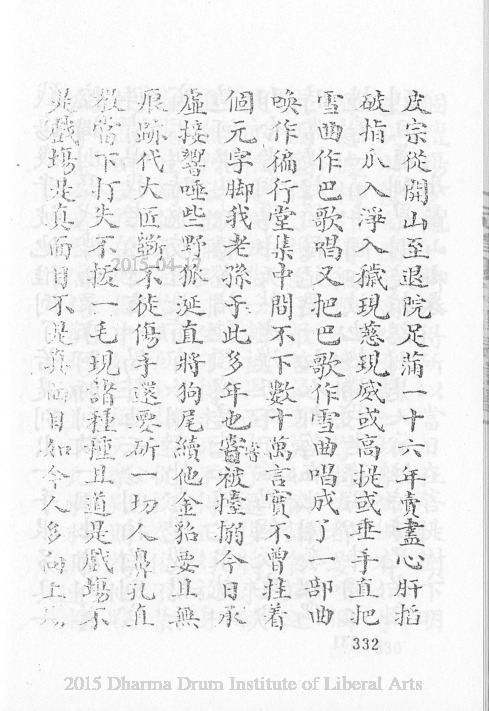 皮宗從開山至退院足蒲一十六年賣盡心肝掐
破指爪入淨入穢現慈現威或高提或垂手直把
雪曲作巴歌唱又把巴歌作雪曲唱成了一部曲
喚作徧行堂集中間不下數十萬言實不曾挂着
個元字脚我老孫于此多年也嘗被擡搦今日承
虛接響唾些野狐涎直將狗尾續他金貂要且無
痕跡代大匠斲不徒傷手還要斫一切人鼻孔直
教當下打失不援一毛現諸種種且道是戲場不
是戲場是真面目不是真面目如今人多向上
332
2015-04-13
2015 Dharma Drum Institute of Liberal Arts